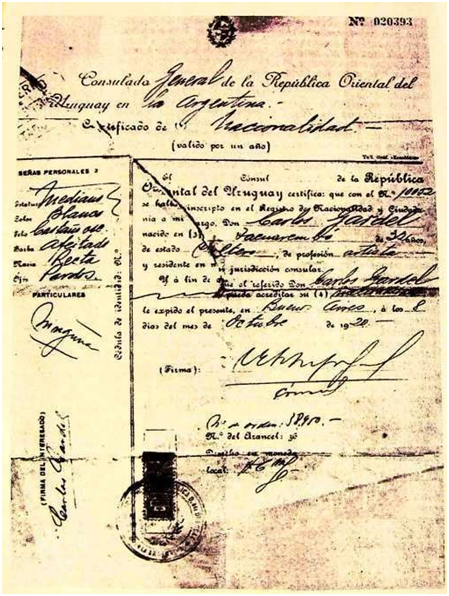 Nº 020393
Consulado General de la República Oriental del
Uruguay en la Argentina.-
Certificado de (1) Nacionalidad
(valido por un año)
SEÑAS PERSONALES 2
Estatura Mediana
Color blanco
Pelo castaño
Barba Afeitado
Nariz Recta
Ojos Pardos
PARTICULARES
Ninguna
(FIRMA DEL INTERESADO)
Carlos Gardel
Cédula de identidad: N.º
El Consul de la República
Oriental del Uruguay certifica: que con el N.º 10052
se halla inscripto en el Registro de Nacionalidad y Ciudada-
nia a mi cargo, Don Carlos Gardel
nacido en (3) Tacuarembó de 32 años,
de estado soltero, de profesión artista
y residente en mi jurisdicción consular.
Y á fin de que el referido Don Carlos Gardel
pueda acreditar su (4)
le expido el presente, en Buenos Aires, á los 8
días del mes de Octubre de 1920.-
(Firma):
Nº de orden: 38910.-
N.º del Arancel: 36
Derecho en moneda
local: